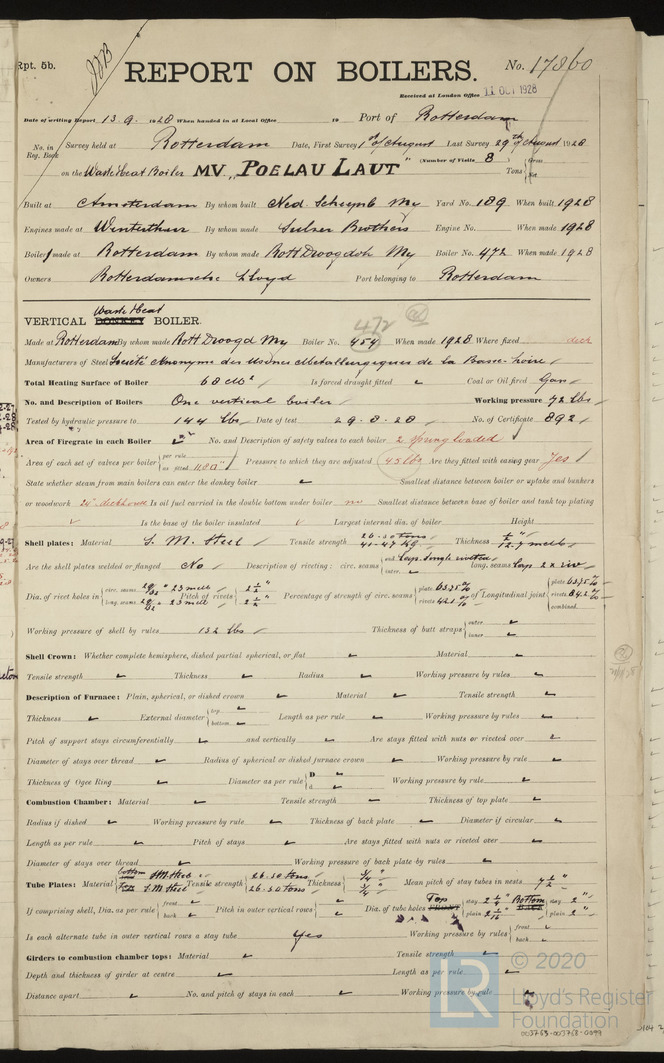 Rpt. 5b.
REPORT ON BOILERS.
No. 17860
Received at London Office 11 OCT 1928
Date of writing Report 13.9.1928 When handed in at Local Office 19 Port of Rotterdam
No. in Reg. Book
Survey held at Rotterdam Date, First Survey 1st of August Last Survey 29th of August 1928
on the Waste Heat Boiler MV. "POELAU LAUT" (Number of Visits 8 Tons { Gross Net
Built at Amsterdam By whom built Ned. Scheepsb. My Yard No. 189 When built 1928
Engines made at Winterthur By whom made Sulzer Brothers Engine No. When made 1928
Boiler made at Rotterdam By whom made Rott Droogdok My Boiler No. 472 When made 1928
Owners Rotterdamsche Lloyd Port belonging to Rotterdam
VERTICAL DONKEY Waste Heat BOILER.
472
Made at Rotterdam By whom made Rott Droogd My Boiler No. 454 When made 1928 Where fixed deck
Manufacturers of Steel Société Anonyme des Usines Métallurgiques de la Basse-Loire
Total Heating Surface of Boiler 68 M² Is forced draught fitted Coal or Oil fired Gas
No. and Description of Boilers One vertical boiler Working pressure 72 lbs
Tested by hydraulic pressure to 144 lbs Date of test 29.8.28 No. of Certificate 892
Area of Firegrate in each Boiler No. and Description of safety valves to each boiler 2 spring loaded
Area of each set of valves per boiler { per rule as fitted Pressure to which they are adjusted 45 lbs Are they fitted with easing gear Yes
State whether steam from main boilers can enter the donkey boiler Smallest distance between boiler or uptake and bunkers
or woodwork 24" deckhouse Is oil fuel carried in the double bottom under boiler no Smallest distance between base of boiler and tank top plating
Is the base of the boiler insulated Largest internal dia. of boiler Height
Shell plates: Material S. M. Steel Tensile strength 26-30 tons 41-47 kg Thickness 1/2" 12.7 m
Are the shell plates welded or flanged No Description of riveting: circ. seams { end laps single riveted inter. long. seams laps 2 x riv
Dia. of rivet holes in { circ. seams 29/32" 23 m long. seams 29/32" 23 m Pitch of rivets { Percentage of strength of circ. seams { plate 63.75% rivets 42.1% of Longitudinal joint { plate 63.75% rivets 84.2% combined
Working pressure of shell by rules 132 lbs Thickness of butt straps { outer inner
Shell Crown: Whether complete hemisphere, dished partial spherical, or flat Material
Tensile strength Thickness Radius Working pressure by rules
Description of Furnace: Plain, spherical, or dished crown Material Tensile strength
Thickness External diameter { top bottom Length as per rule Working pressure by rules
Pitch of support stays circumferentially and vertically Are stays fitted with nuts or riveted over
Diameter of stays over thread Radius of spherical or dished furnace crown Working pressure by rule
Thickness of Ogee Ring Diameter as per rule { D d Working pressure by rule
Combustion Chamber: Material Tensile strength Thickness of top plate
Radius if dished Working pressure by rule Thickness of back plate Diameter if circular
Length as per rule Pitch of stays Are stays fitted with nuts or riveted over
Diameter of stays over thread Working pressure of back plate by rules
Tube Plates: Material { bottom S M Steel Top S. M Steel Tensile strength { 26.30 tons 26.30 tons Thickness { 3/4" 3/4" Mean pitch of stay tubes in nests 7 1/2"
If comprising shell, Dia. as per rule { front back Pitch in outer vertical rows { Dia. of tube holes FRONT Top { stay 2 1/4" plain 2 1/16" BACK Bottom { stay 2" plain 2"
Is each alternate tube in outer vertical rows a stay tube Yes Working pressure by rules { front back
Girders to combustion chamber tops: Material Tensile strength
Depth and thickness of girder at centre Length as per rule
Distance apart No. and pitch of stays in each Working pressure by rule
LR © 2020
Lloyd's Register
Foundation
003763-003768-0099